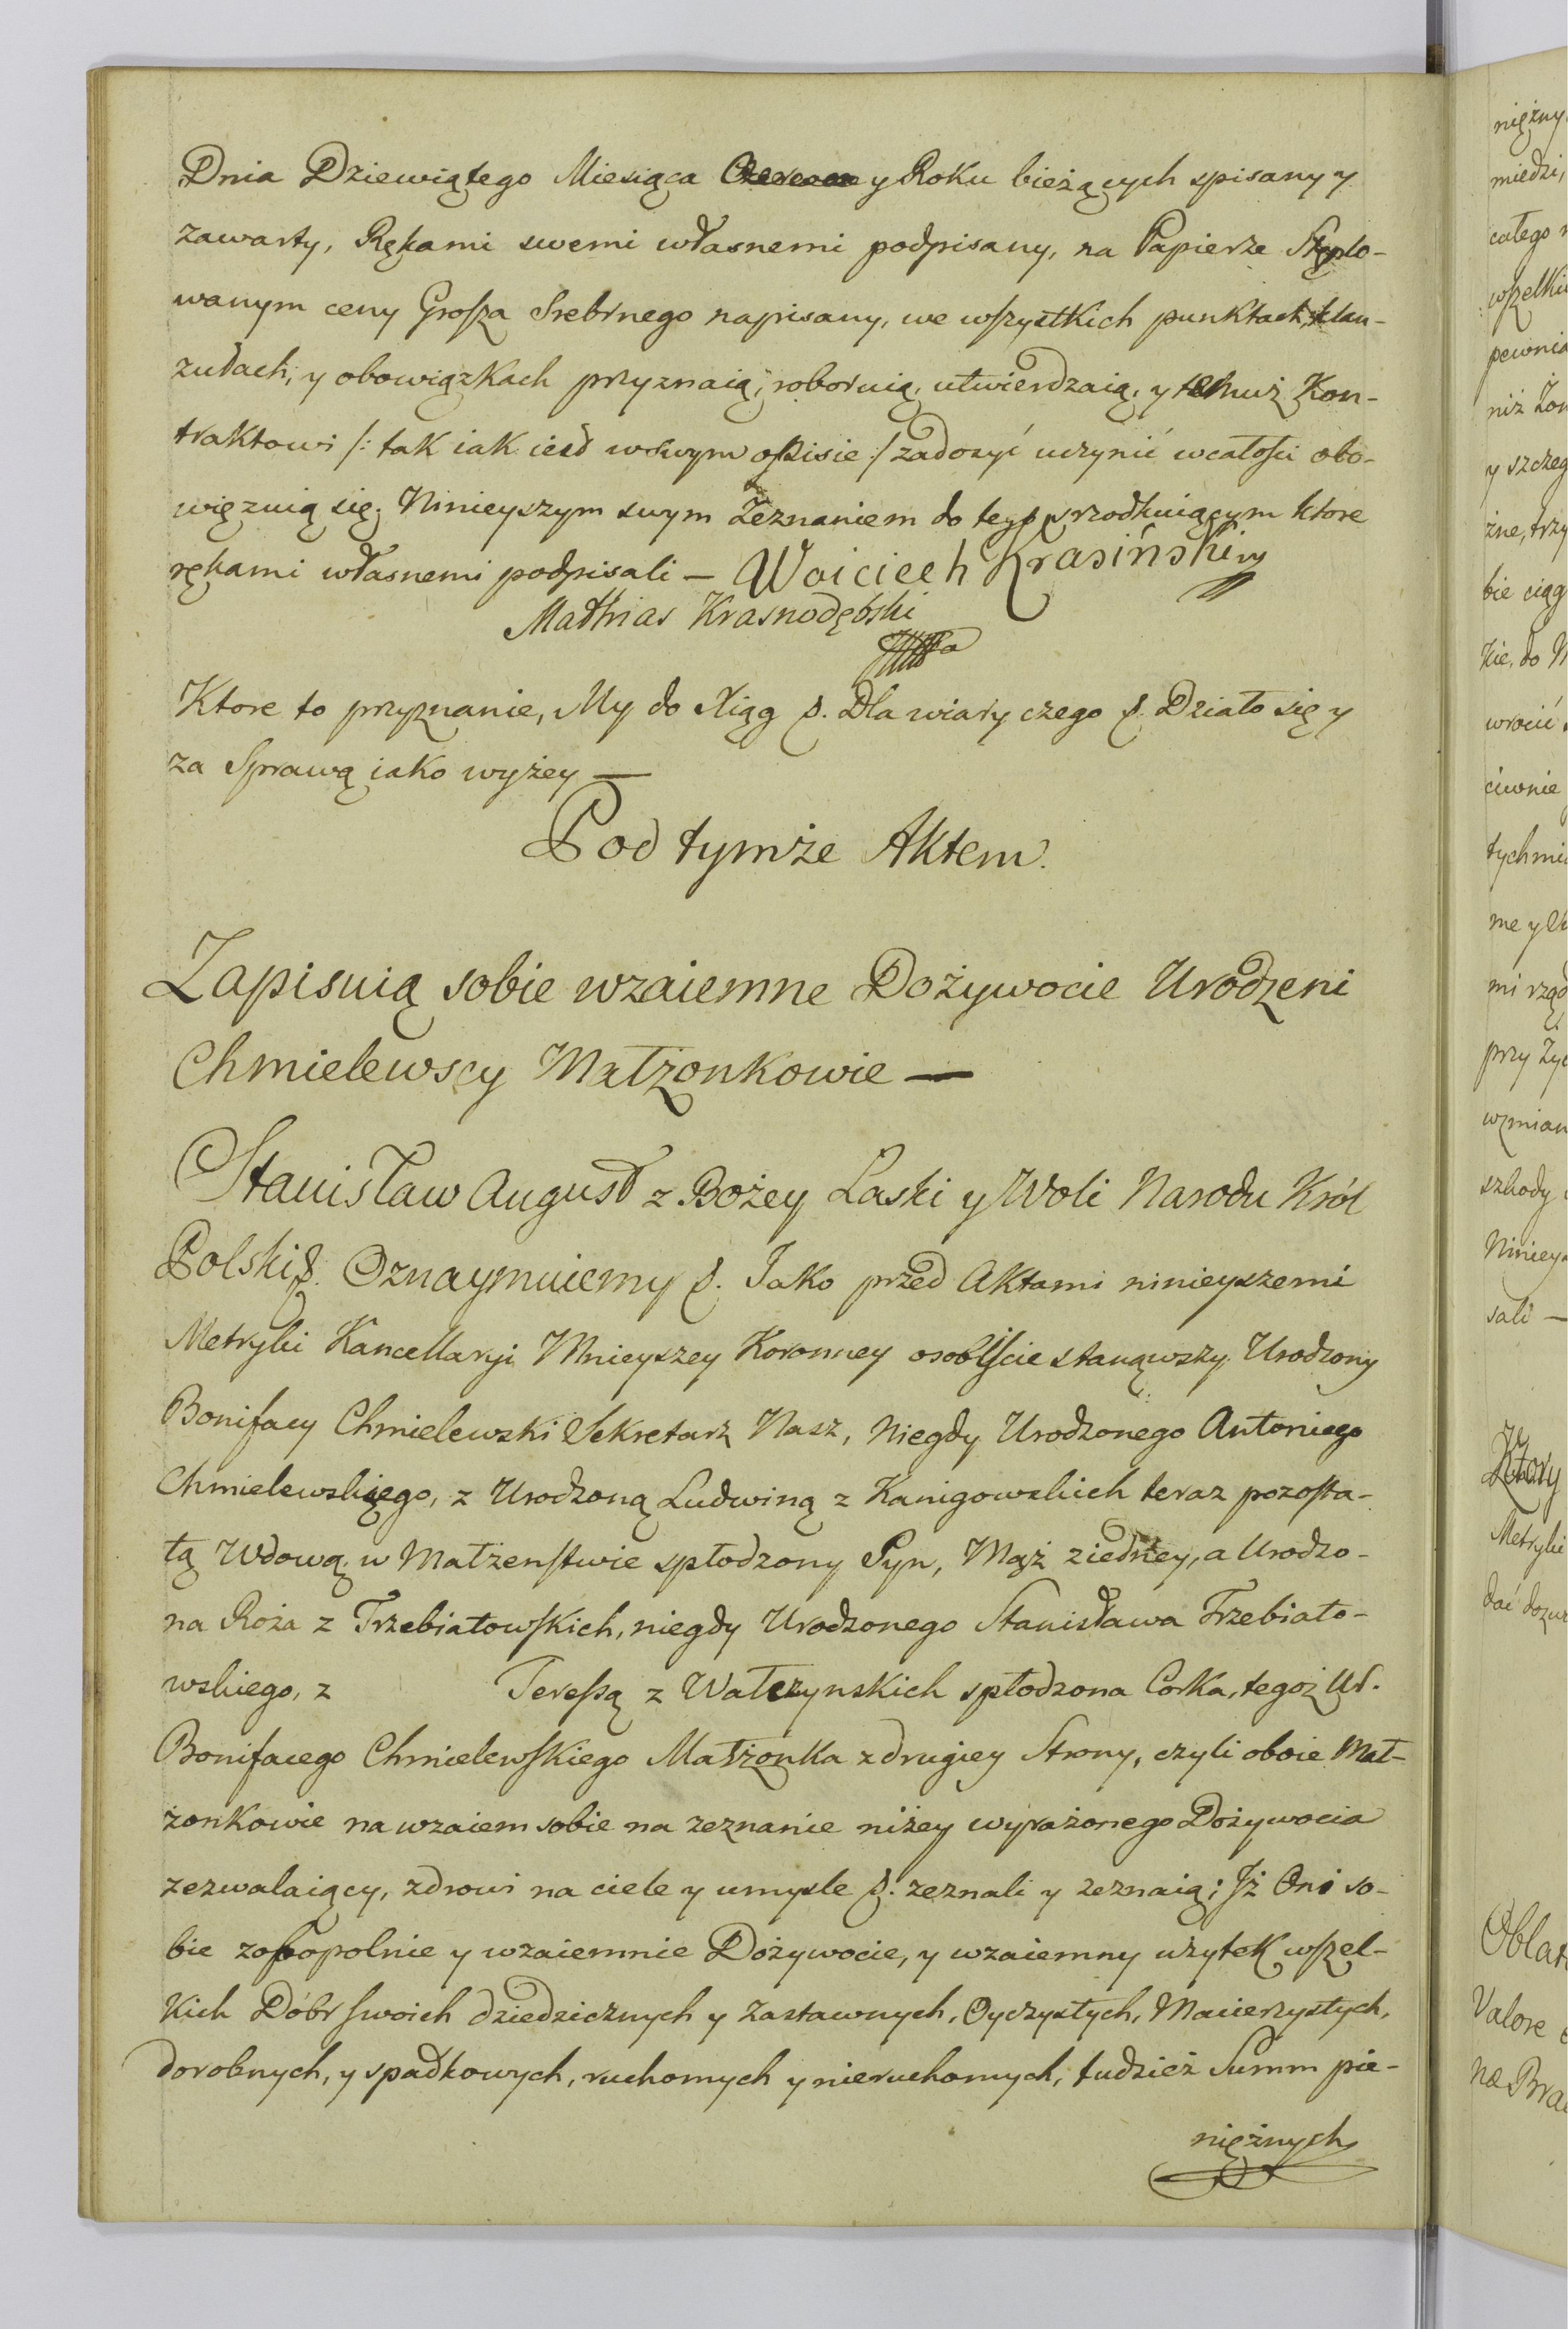 Dnia Dziewiątego Miesiąca Czerwca y Roku bieżących spisany y
zawarty, Rękami swemi własnemi podpisany, na Papierze Stęplo-
wanym ceny Grosza Srebrnego napisany, we wszystkich punktach, klau-
zulach, y obowiązkach przyznaią, roboruią, utwierdzaią, y temuż Kon-
traktowi /: tak iak iest w swym opisie :/ zadosyć uczynić w całości obo-
więzuią się. Ninieyszym swym Zeznaniem do tego srzodkuiącym ktore
rękami własnemi podpisali — Woiciech Krasiński
Mathias Krasnodębski
Ktore to przyznanie, My do Xiąg &. Dla wiary czego &. Działo się y
za Sprawą iako wyżey —
Pod tymże Aktem.
Zapisuią sobie wzaiemne Dożywocie Urodzeni
Chmielewscy Małżonkowie —
Stanisław August z Bożey Łaski y Woli Narodu Król
Polski &. Oznaymuiemy &. Jako przed Aktami ninieyszemi
Metryki Kancellaryi Mnieyszey Koronney osobiście stanąwszy Urodzony
Bonifacy Chmielewski Sekretarz Nasz, Niegdy Urodzonego Antoniego
Chmielewskiego, z Urodzoną Ludwiną z Kanigowskich teraz pozosta-
łą Wdową, w Małżenstwie spłodzony Syn, Mąż z iedney, a Urodzo-
na Roża z Trzebiatowskich, niegdy Urodzonego Stanisława Trzebiato-
wskiego, z Teressą z Wałczynskich spłodzona Corka, tegoż Ur.
Bonifacego Chmielewskiego Małżonka z drugiey Strony, czyli oboie Mał-
żonkowie na wzaiem sobie na zeznanie niżey wyrażonego Dożywocia
zezwalaiący, zdrowi na ciele y umysle &. zeznali y zeznaią; Iż Oni so-
bie zobopolnie y wzaiemnie Dożywocie, y wzaiemny użytek wszel-
kich Dóbr swoich dziedzicznych y Zastawnych, Oyczystych, Macierzystych,
dorobnych, y spadkowych, ruchomych y nieruchomych, tudzież Summ pie-
niężnych